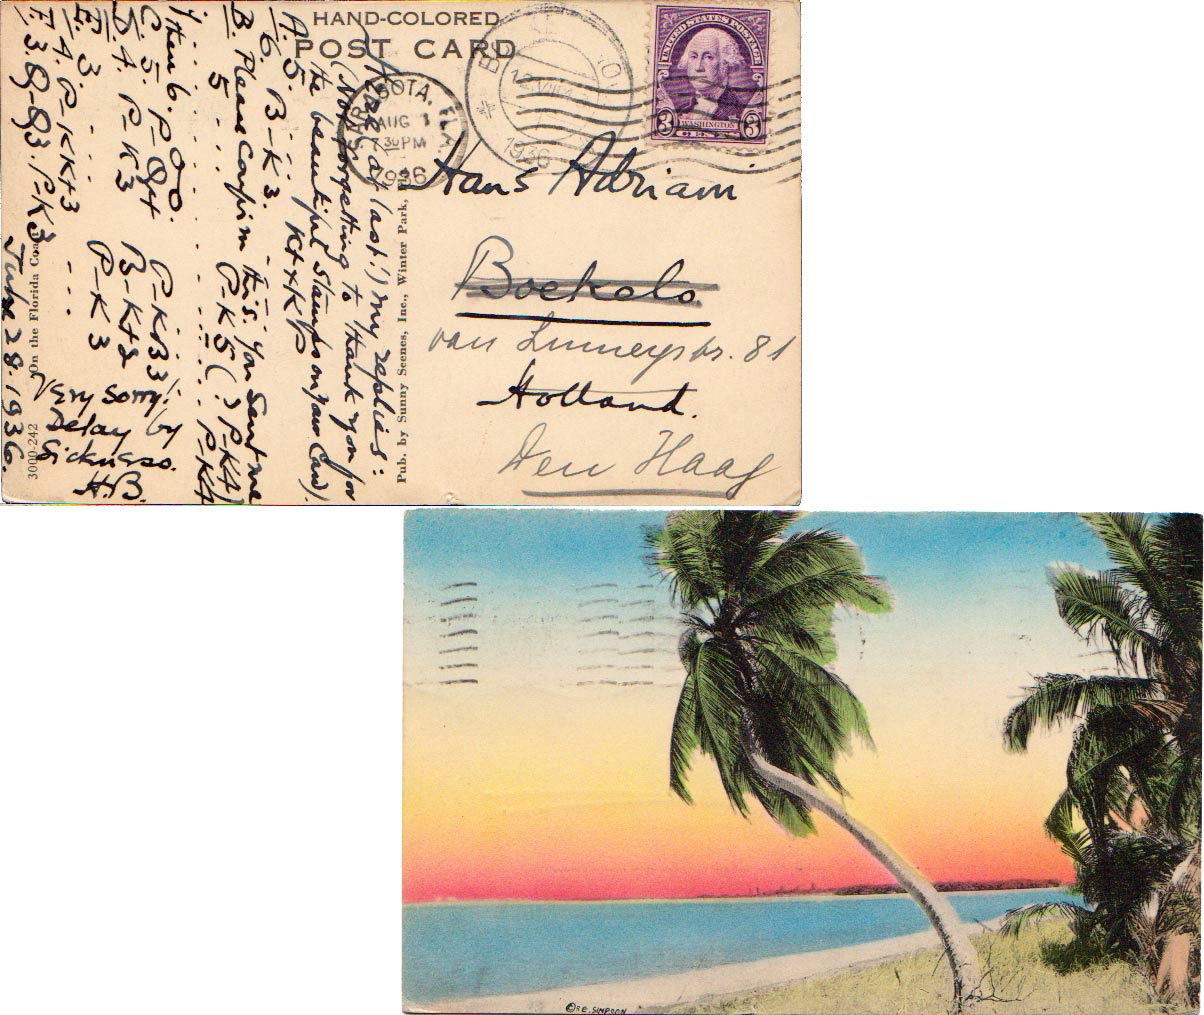 HAND-COLORED
POST CARD
UNITED STATES POSTAGE
3 WASHINGTON 3
SARASOTA, FLA.
AUG
7 30 PM
1936
1936
Hans Adriam
Boekelo
van Linneystr. 81
Holland.
Den Haag
Pub. by Sunny Scenes, Inc., Winter Park,
3000-242 On the Florida Coast
Here (at last!) my replies:
(Not forgetting to thank you for
the beautiful stamps on your card).
A. 5. KtxKP
6. B-K3.
B. Please confirm this. You sent me
5 P-K5(?) P-K4)
P-K4
then 6. P-
C. 5. P-Q4 P-KB3
D. 4. P-K3 B-Kt2
E. 3. P-K3
4. P-KKt3
F. 3 P-Q3. P-K3.
July 28. 1936.
Very sorry!
Delay by
Sickness.
H.B.
© R.E. SIMPSON